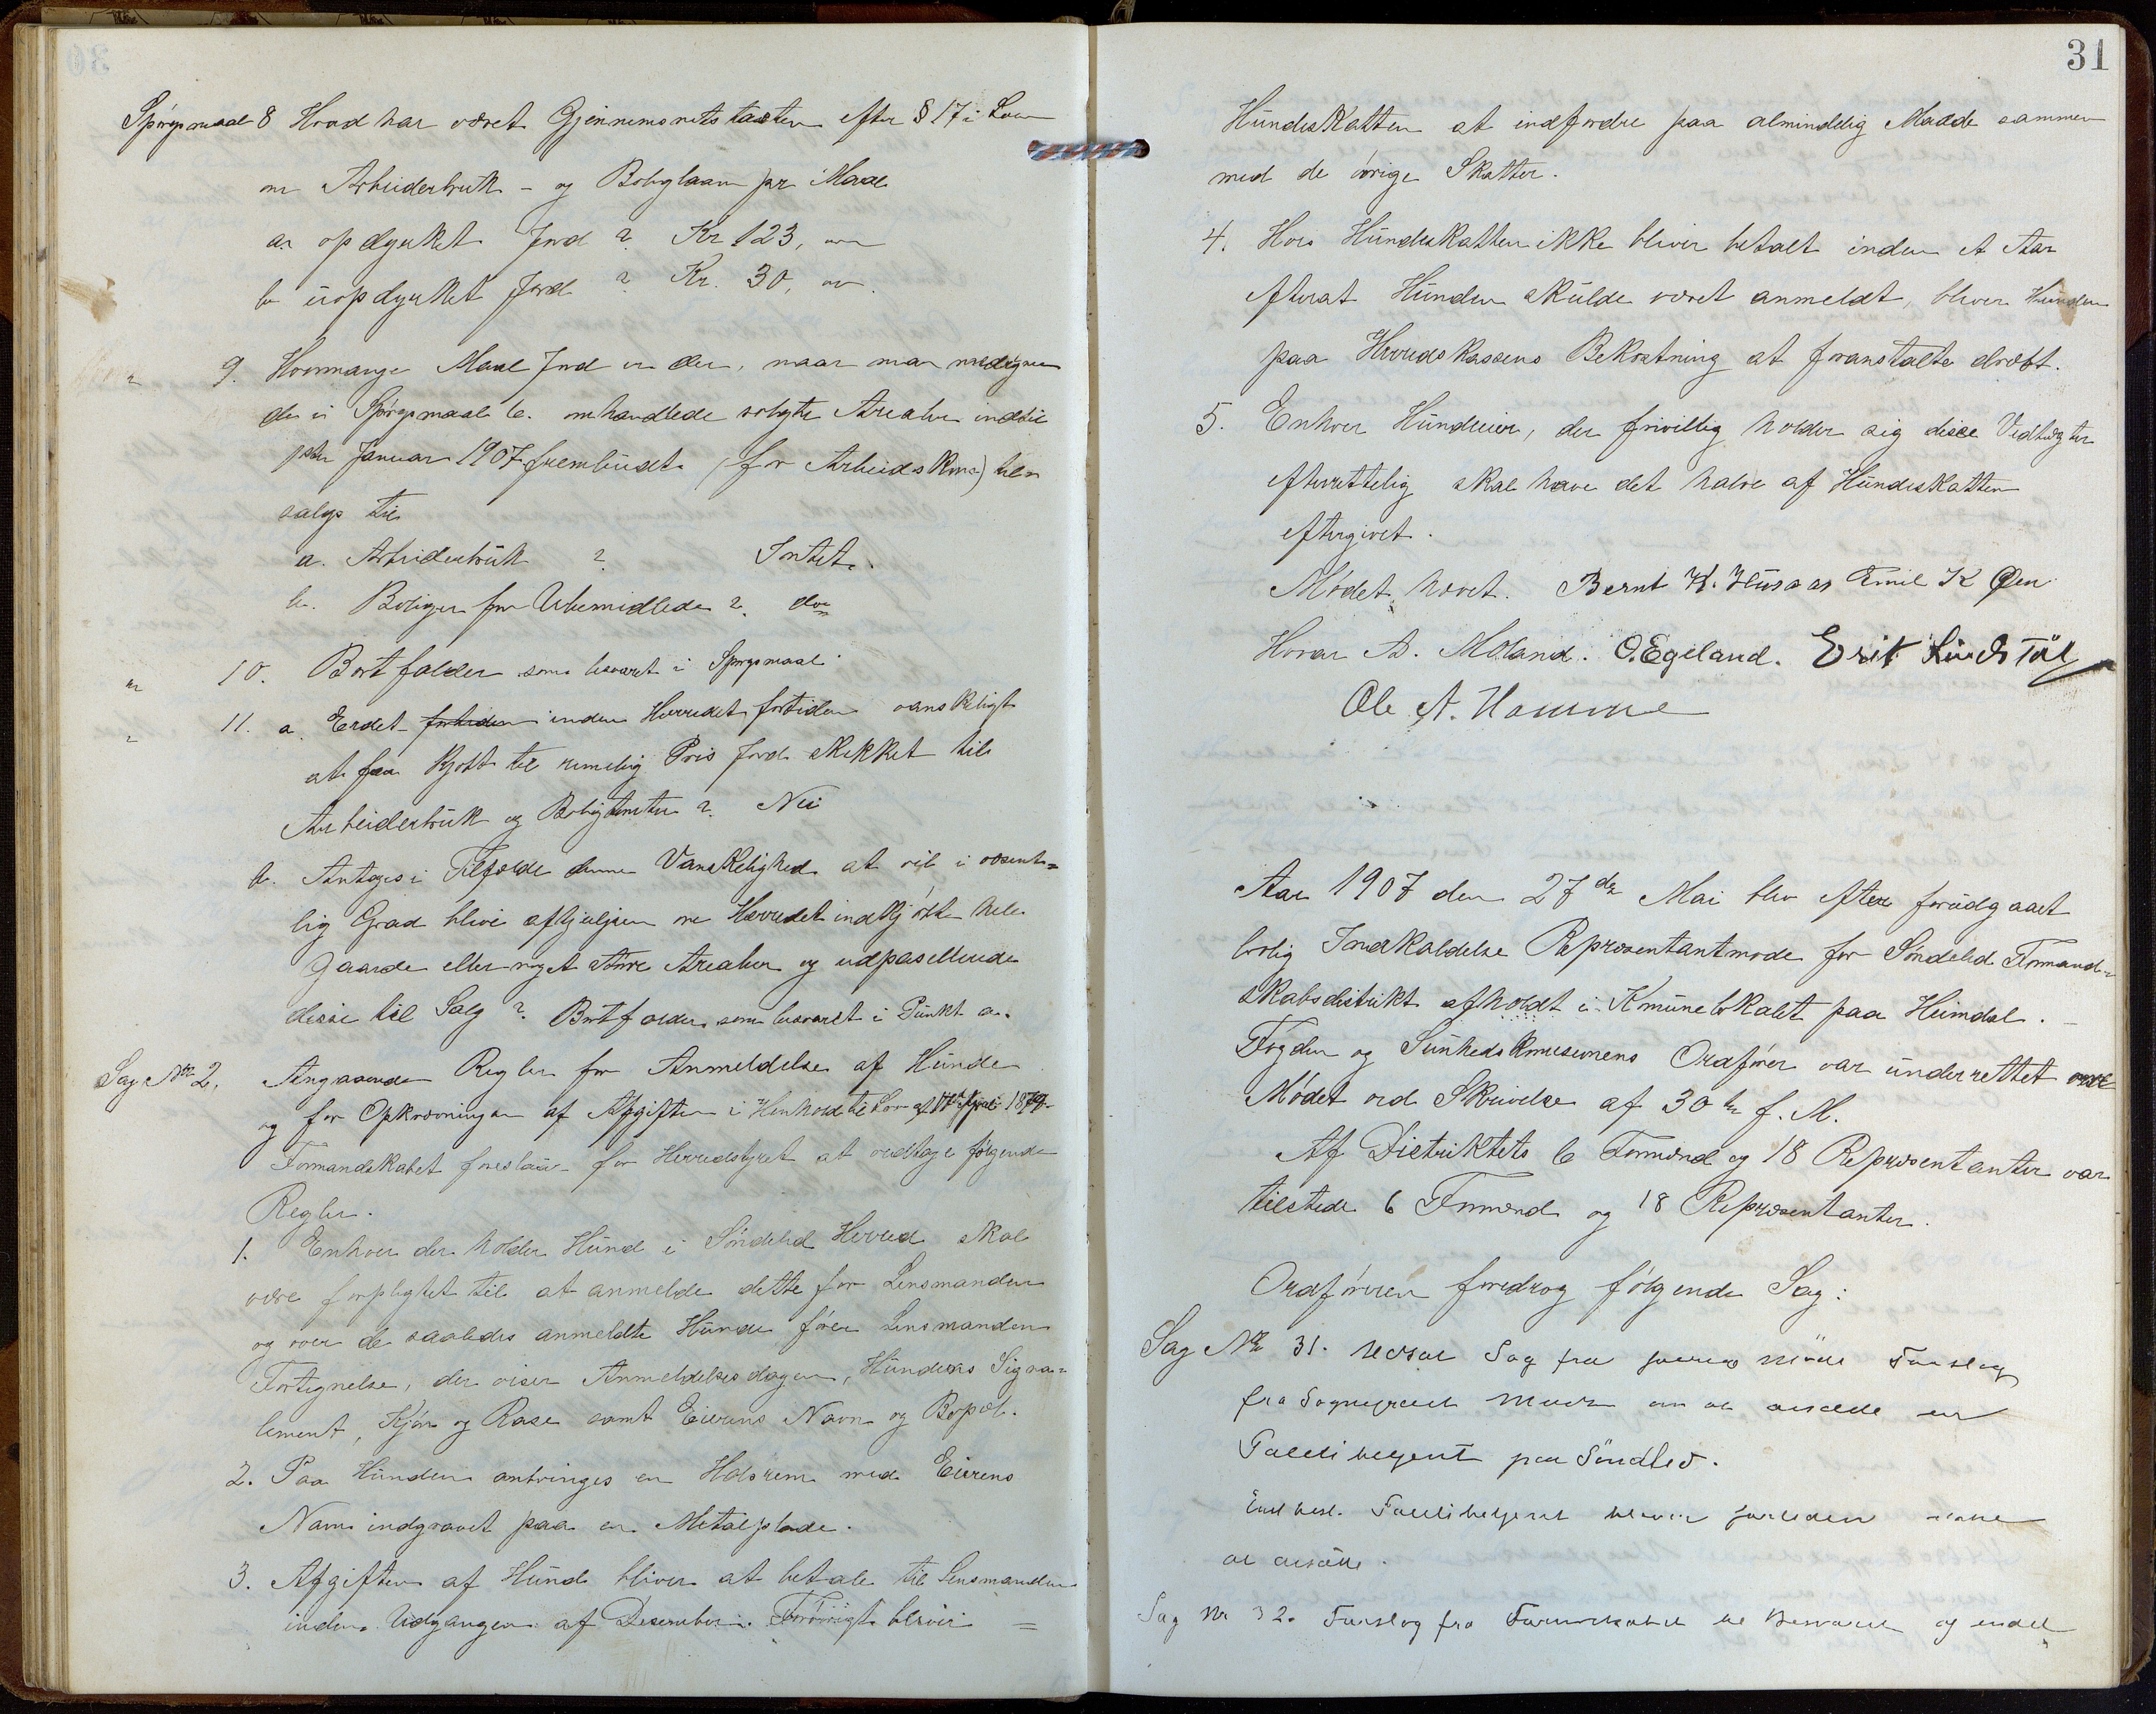 Spörgsmaal 8 Hvad har været Gjennemsnitstaxten efter § 17 i Lov
om Arbeiderbruk - og Boliglaan pr Maal
a. opdyrket Jord ? Kr 123,
b uopdyrket Jord ? Kr. 30,
" 9. Hvormange Maal Jord er der, naar man medregner
de i Spörgsmaal 6. omhandlede solgte Arealer indtil
1ste Januar 1907 frembudt (for Arbeidskom) til
salgs til
a. Arbeiderbruk ? Intet.
b. Boliger for Ubemidlede ? do
" 10. Bortfalder som besvaret i Spörgsmaal
" 11. a. Erdet fortiden inden Herredet fortiden vanskeligt
at faa kjöbt til rimelig Pris Jord skikket til
Arbeiderbruk og Boligtomter ? Nei
b. Antages i Tilfælde denne Vanskelighed at vil i væsent=
lig Grad blive afhjulpen om Herredet indkjöbte hele
Gaarde eller noget större Arealer og udpasellerede
disse til Salg ? Bortfalder som besvaret i Punkt a.
Sag No 2. Angaaende Regler for Anmeldelse af Hunde
og for Opkrævningen af Afgiften i Henhold til Lov af April 1879.
Formandskabet foreslaar for Herredstyret at vedtage fölgende
Regler.
1. Enhver der holder Hund i Söndeled Herred skal
være forpligtet til at anmelde dette for Lensmanden
og over de saaledes anmeldte Hunde förer Lensmanden
Fortegnelse, der viser Anmeldelsesdagen, Hundens Signa=
lement, Kjön og Rase samt Eierens Navn og Bopæl.
2. Paa Hunden anbringes en Halsrem med Eierens
Navn indgravet paa en Metalplade.
3. Afgiften af Hund bliver at betale til Lensmanden
inden Udgangen af Desember. Forövrigt bliver =
31
Hundeskatten at indfordre paa almindelig Maade sammen
med de övrige Skatter.
4. Hvis Hundeskatten ikke bliver betalt inden et Aar
efterat Hunden skulde været anmeldt, bliver Hunden
paa Herredskassens Bekostning at foranstalte dræbt.
5. Enhver Hundeier, der frivillig holder sig disse Vedtægter
efterrettelig skal have det halve af Hundeskatten
eftergivet.
Mödet hævet. Bernt K. Husaas Emil K Øen
Hovar A. Moland. O. Egeland. Erik Lindstöl
Ole A. Homme
Aar 1907 den 27de Mai blev efter forudgaaet
lovlig Indkaldelse Repræsentantmöde for Söndeled Formand=
skabsdistrikt afholdt i Komunelokalet paa Heimdal.
Fogden og Sunhedskomisionens Ordförer var underrettet om
Mödet ved Skrivelse af 30te f. M.
Af Distriktets 6 Formænd og 18 Repræsentanter var
tilstede 6 Formænd og 18 Repræsentanter.
Ordföreren foredrog fölgende Sag:
Sag No 31. Udsat Sag fra forrige Möde Forslag
fra Sogneprest om at ansætte en
Politibetjent paa Söndeled.
Enst besl. Politibetjent bliver fortiden ikke
at ansætte.
Sag Nr 32. Forslag fra Formskabet til Besvarelse af endel